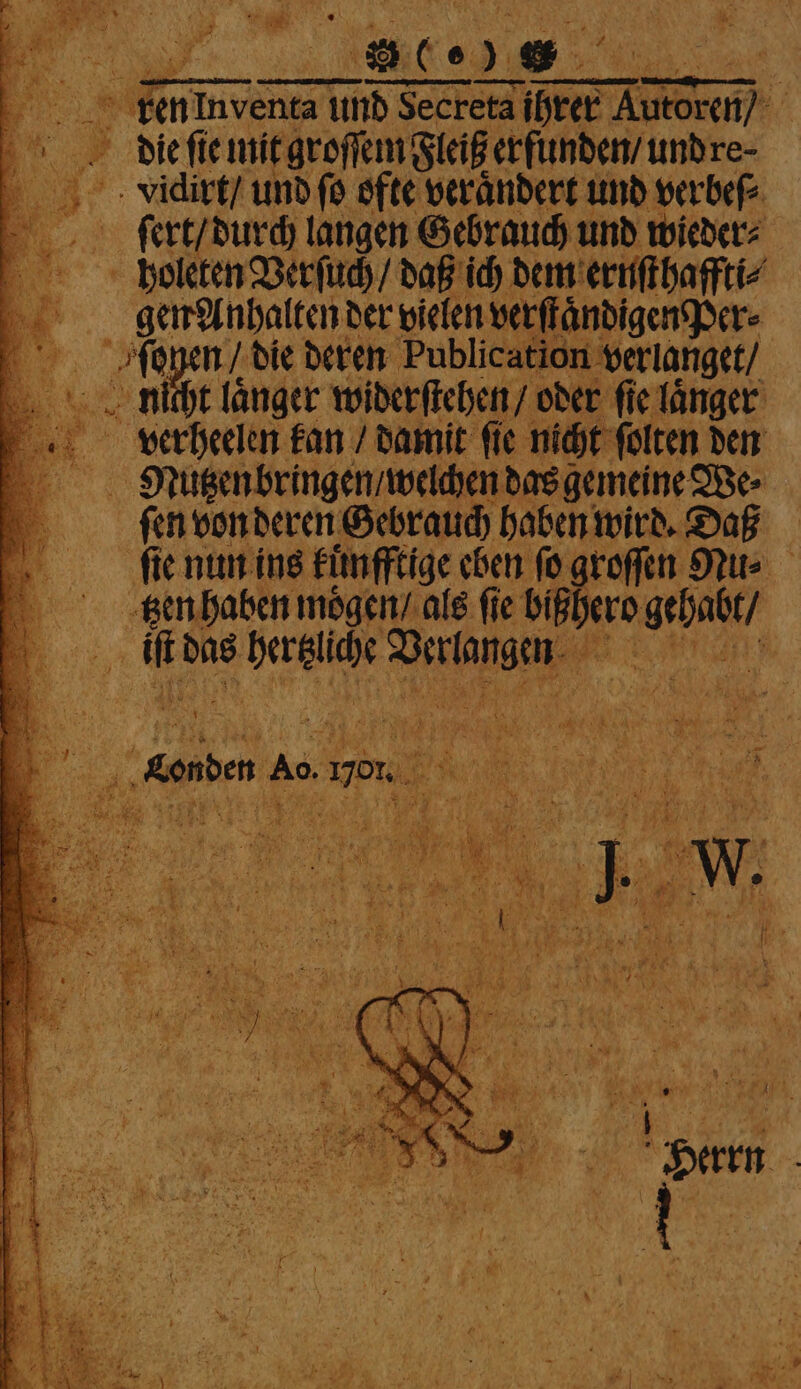 ( o )
ren Inventa und Secreta ihrer Autoren/
die ſie mit groſſem Fleiß erfunden/ und re-
vidirt/ und ſo ofte veraͤndert und verbeſ⸗
ſert/ durch langen Gebrauch und wieder⸗
holeten Verſuch/ daß ich dem ernſthaffti⸗
gen Anhalten der vielen verſtaͤndigen Per⸗
ſonen/ die deren Publication verlanget/
nicht laͤnger widerſtehen/ oder ſie laͤnger
verheelen kan/ damit ſie nicht ſolten den
Nutzen bringen/ welchen das gemeine We⸗
ſen von deren Gebrauch haben wird. Daß
ſie nun ins kuͤnfftige eben ſo groſſen Nu⸗
tzen haben moͤgen/ als ſie bißhero gehabt/
iſt das hertzliche Verlangen
Londen Ao. 1701.
J. W.
Herrn